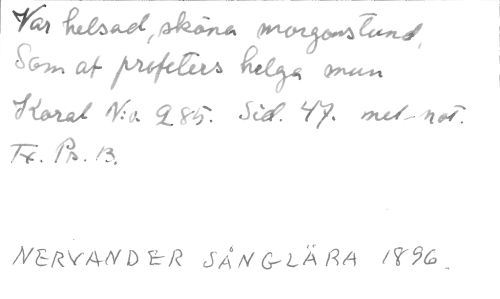 Var helsad, sköna morgonstund,
Som af profeters helga mun
Koral N:o 285. Sid. 47. med not.
Tx. Ps. B.
NERVANDER SÅNGLÄRA 1896.